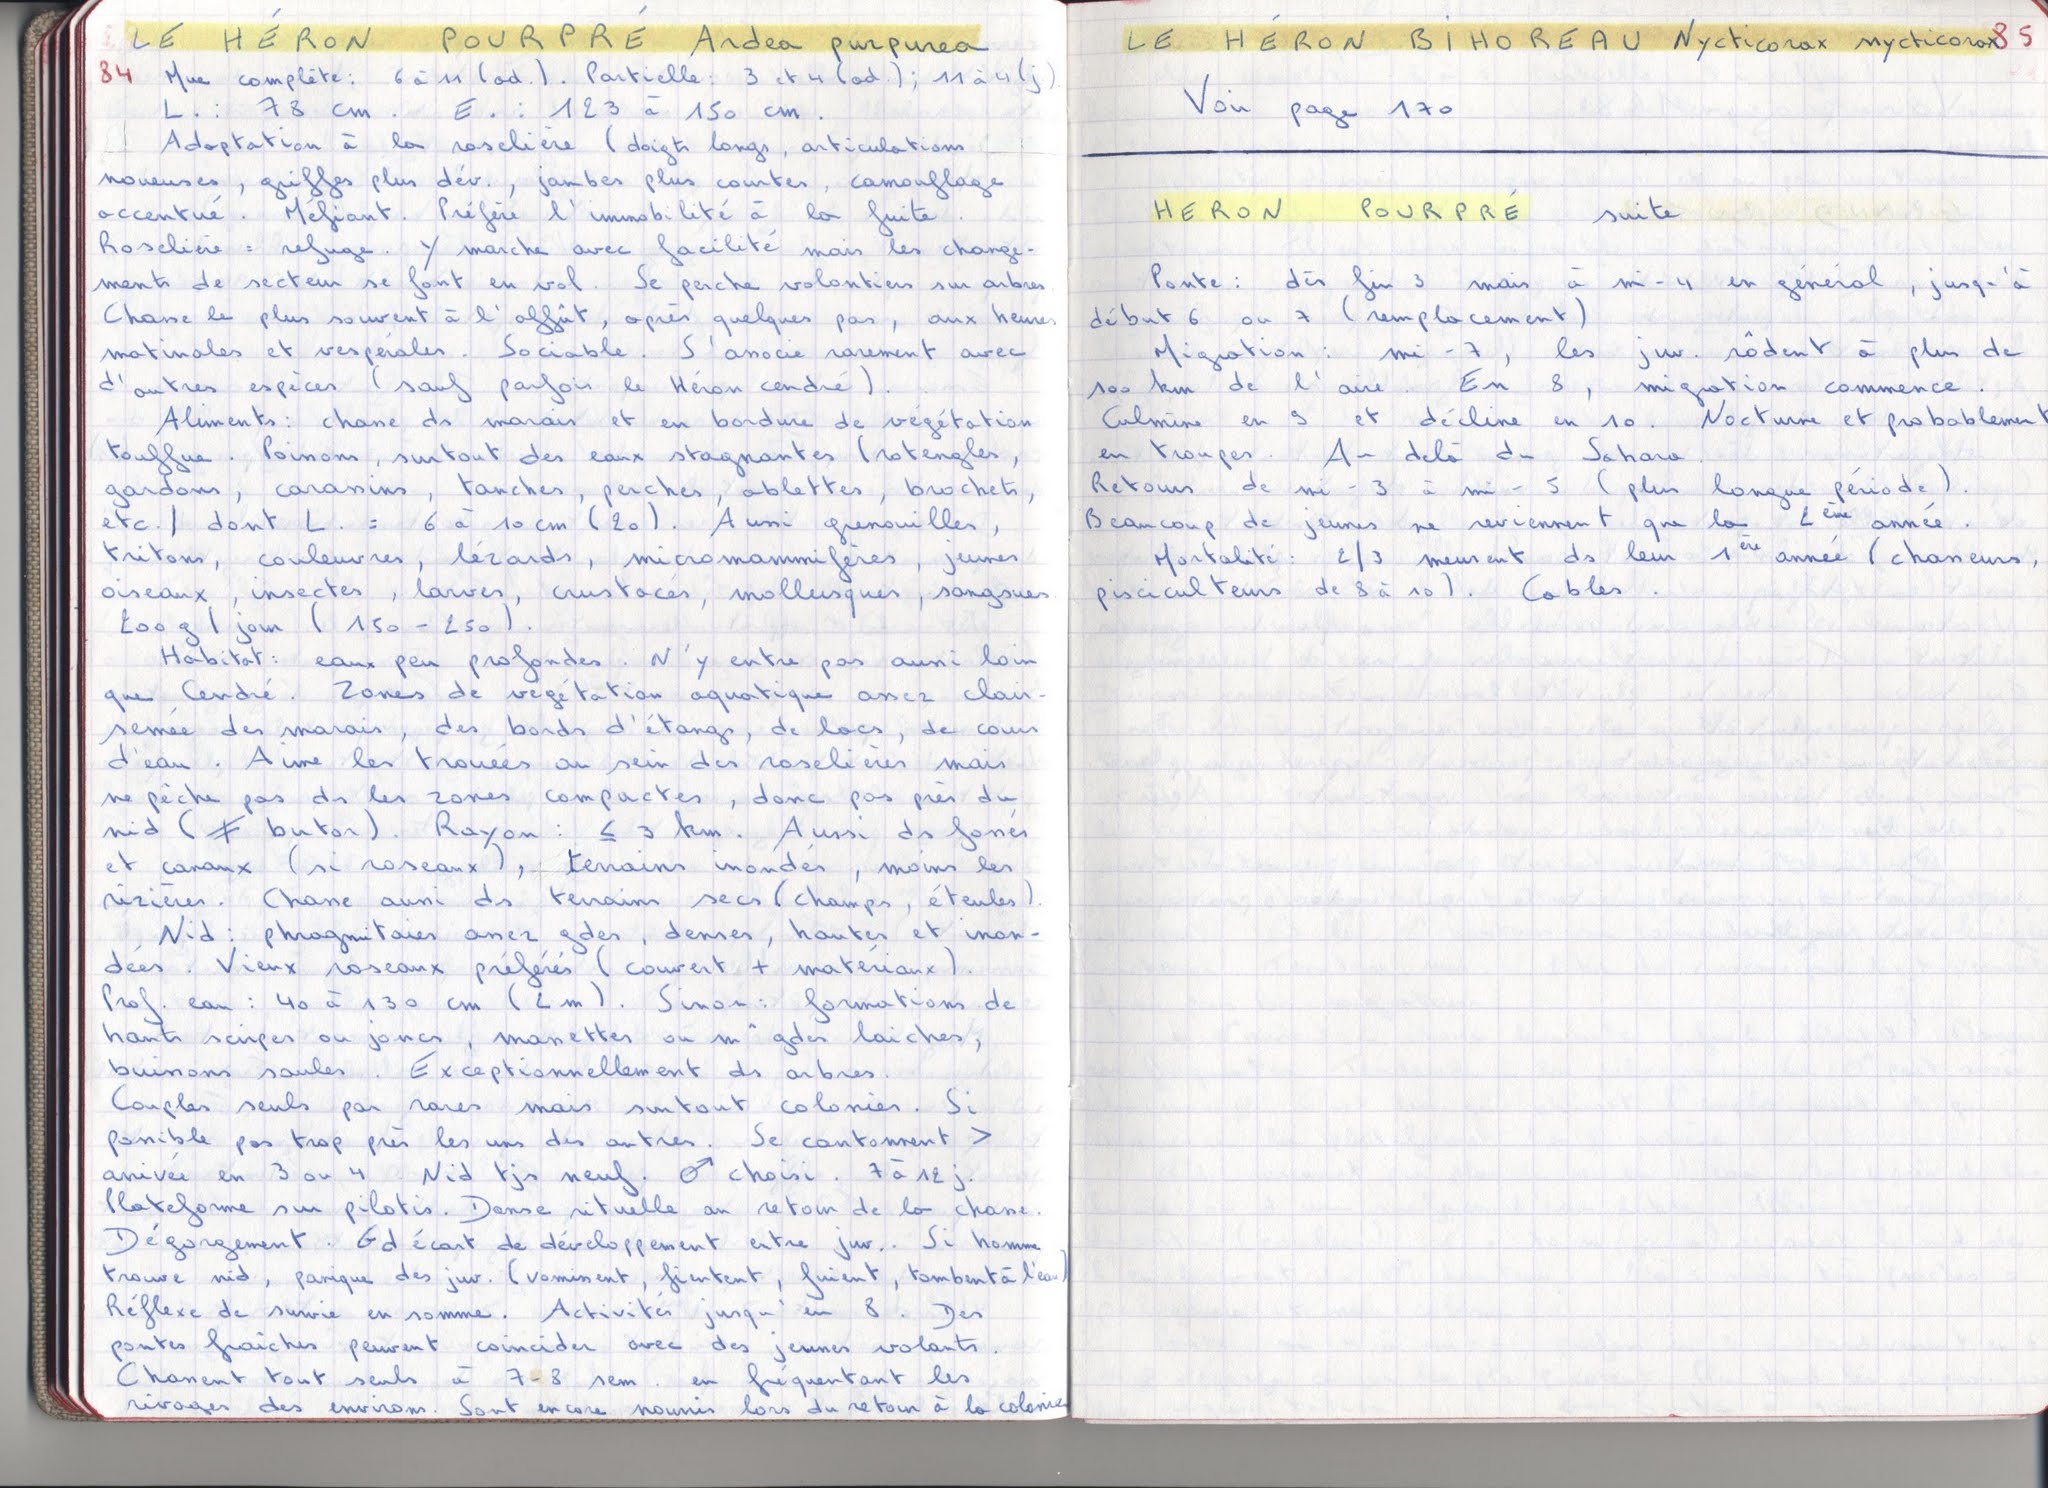 LE HÉRON POURPRÉ Ardea purpurea
84 Mue complète : 6 à 11 (ad.). Partielle : 3 et 4 (ad.) ; 11 à 4 (j).
L. : 78 cm. E. : 123 à 150 cm.
Adaptation à la roselière (doigts longs, articulations
noueuses, griffes plus dév., jambes plus courtes, camouflage
accentué. Méfiant. Préfère l'immobilité à la fuite.
Roselière = refuge. Y marche avec facilité mais les change-
ments de secteur se font en vol. Se perche volontiers sur arbres.
Chasse le plus souvent à l'affût, après quelques pas, aux heures
matinales et vespérales. Sociable. S'associe rarement avec
d'autres espèces (sauf parfois le Héron cendré).
Aliments : chasse ds marais et en bordure de végétation
touffue. Poissons, surtout des eaux stagnantes (rotengles,
gardons, carassins, tanches, perches, ablettes, brochets,
etc.) dont L. = 6 à 10 cm (20). Aussi grenouilles,
tritons, couleuvres, lézards, micromammifères, jeunes
oiseaux, insectes, larves, crustacés, mollusques, sangsues.
200 g / jour (150 - 250).
Habitat : eaux peu profondes. N'y entre pas aussi loin
que Cendré. Zones de végétation aquatique assez clair-
semée des marais, des bords d'étangs, de lacs, de cours
d'eau. Aime les trouées au sein des roselières mais
ne pêche pas ds les zones compactes, donc pas près du
nid (≠ butor). Rayon : ≤ 3 km. Aussi ds fossés
et canaux (si roseaux), terrains inondés, moins les
rizières. Chasse aussi ds terrains secs (champs, éteules).
Nid : phragmitaies assez gdes, denses, hautes et inon-
dées. Vieux roseaux préférés (couvert + matériaux).
Prof. eau : 40 à 130 cm (2 m). Sinon : formations de
hauts scirpes ou joncs, massettes ou m^ gdes laiches,
buissons saules. Exceptionnellement ds arbres.
Couples seuls pas rares mais surtout colonies. Si
possible pas trop près les uns des autres. Se cantonnent >
arrivée en 3 ou 4. Nid tjs neuf. ♂ choisi. 7 à 12 j.
Plateforme sur pilotis. Danse rituelle au retour de la chasse.
Dégorgement. Gd écart de développement entre juv.. Si homme
trouve nid, panique des juv. (vomissent, fientent, fuient, tombent à l'eau)
Réflexe de survie en somme. Activités jusqu'en 8. Des
pontes fraîches peuvent coincider avec des jeunes volants.
Chassent tout seuls à 7-8 sem. en fréquentant les
rivages des environs. Sont encore nourris lors du retour à la colonie
LE HÉRON BIHOREAU Nycticorax nycticorax 85
Voir page 170
HERON POURPRÉ suite
Ponte : dès fin 3 mais à mi-4 en général, jusqu'à
début 6 ou 7 (remplacement)
Migration : mi-7, les juv. rôdent à plus de
100 km de l'aire. En 8, migration commence.
Culmine en 9 et décline en 10. Nocturne et probablement
en troupes. Au delà du Sahara.
Retours de mi-3 à mi-5 (plus longue période).
Beaucoup de jeunes ne reviennent que la 2ème année.
Mortalité : 2/3 meurent ds leur 1ère année (chasseurs,
pisciculteurs de 8 à 10). Cables.